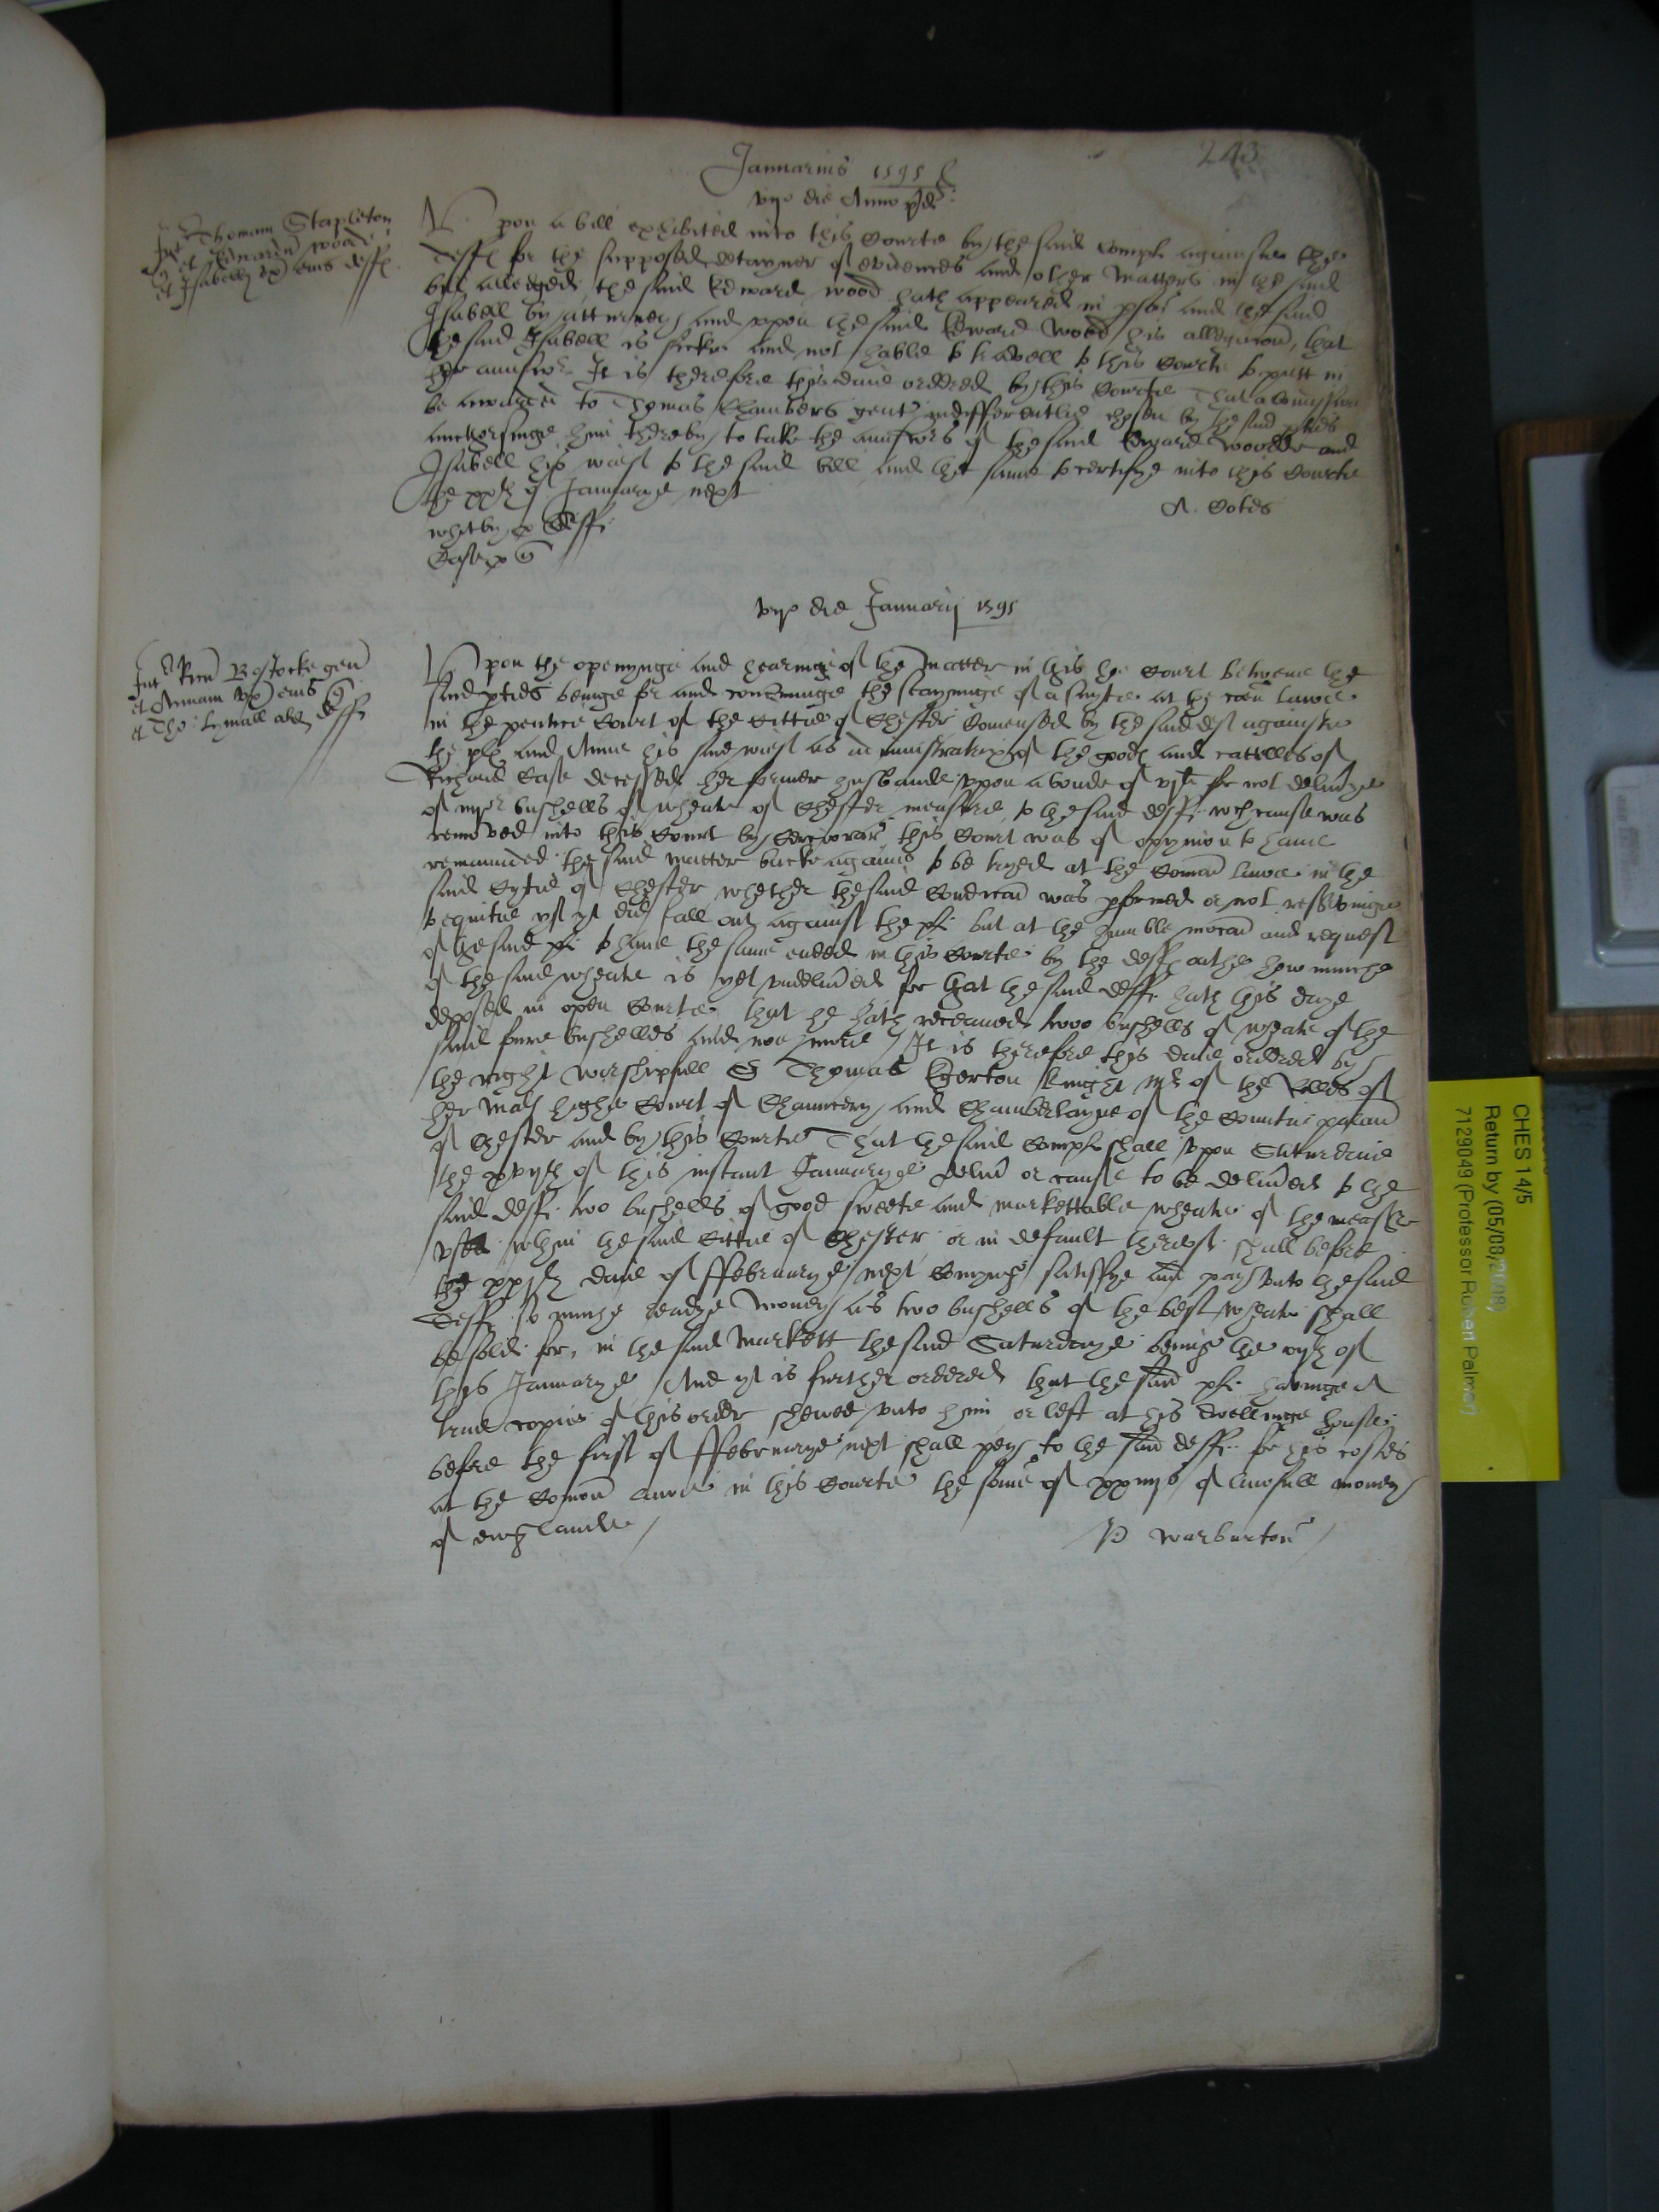 243
Januarius 1595
vijo die Anno pd:
Int Thomam Stapleton
et Edwardu woode
et Isabell ux eius deff
Upon a bill exhibited into this Courte by the said compl againste the
deff for the supposed detayner of evidences and other matters in the said
bill alledged, the said Edward wood hath appeared in pson and the said
Isabell by atturney and uppon the said Edward Wood his allegacon, that
the said Isabell is sicke and not hable to travell to this Courte to putt in
her aunswr It is therefore this daie ordered by this Courte That a Comyssion
be awarded to Thomas Chambers gent indifferentlie chosen by the said pties
aucthorisinge him thereby to take the aunswrs of the said Edward Woodde and
Isabell his wief to the said bill and the same to certifye into this Courte
the xxth of Januarye next
A. Coles
whitby p deff
Case p
vijo die Januarij 1595
Int Ricu Bostocke gen
et Annam ux eius
et Tho: lynall ald deff
Upon the openynge and hearinge of the matter in this he Court betwene the
said pties beinge for and concninge the stayinge of a suyte at the coen lawe
in the pentice Court of the Cittie of Chester Comensed by the said def againste
the pl and Anne his said wief as administratrix of the goods and cattells of
Richard Case decessed her former husbande uppon a bonde of vjli for not deliverye
of iiijor bushells of wheate of Chester measure to the said deff wch cause was
removed into this Court by Serciorar, this Court was of opynion to have
remaunded the said matter backe againe to be tryed at the Comon lawe in the
said Cytie of Chester whether the said Condicon was pformed or not reservinge
to equitie yf yt did fall out against the pl but at the humble mocon and request
of the said pl to have the same ended in this Courte by the deff oathe how muche
of the said wheate is yet undelivered for that the said deff hath this daye
deposed in open Courte that he hath receaved twoo bushells of wheate of the
said foure bushelles and noe more / It is therefore this daie ordered by
the right worshipfull Sr Thomas Egerton knight Mr of the Rolles of
her Mats highe Court of Chauncery and Chamberlayne of the Countie palan
of Chester and by this Courte That the said Compl shall uppon Saturdaie
the xvijth of this instant Januarye deliv or cause to be delivered to the
said deff two bushells of good sweete and markettable wheate of the measure
used wthin the said Cittie of Chester or in default thereof shall before
the xxjth daie of ffebruarye next Comynge satisfye and pay unto the said
deff so muche readye money as two bushells of the best wheate shall
be solde for, in the said Markett the said Saturdaye beinge the xvijth of
this Januarye And yt is further ordered that the said pl havinge A
true copie of this order shewed unto him or left at his dwellinge house
before the first of ffebruarye next shall pay to the said deff for his costes
at the Comon lawe in this Courte the some of xxiijs of lawfull money
of englande /
P Warburton
CHES 14/5
Return by (05/08/2008)
7129049 (Professor Robert Palmer)